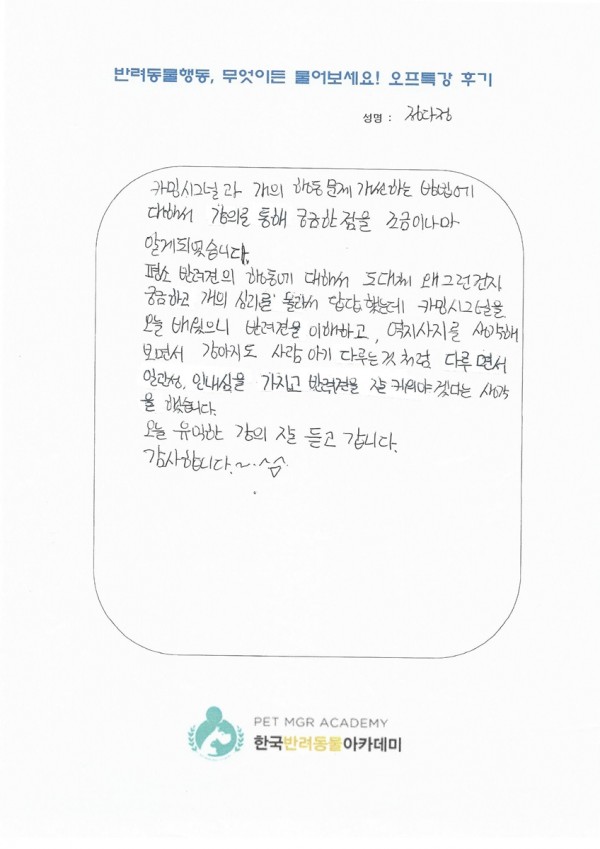 반려동물행동, 무엇이든 물어보세요! 오프특강 후기
성명 : 정다정
카밍시그널과 개의 행동문제 개선하는 방법에
대해서 강의를 통해 궁금한점을 조금이나마
알게되었습니다.
평소 반려견의 행동에 대해서 도대체 왜그런건지
궁금하고 개의 심리를 몰라서 답답했는데 카밍시그널을
오늘 배웠으니 반려견을 이해하고, 역지사지를 생각해
보면서 강아지도 사람 아기 다루는것처럼 다루면서
일관성, 인내심을 가지고 반려견을 잘 키워야겠다는 생각
을 했습니다.
오늘 유익한 강의 잘 듣고 갑니다.
감사합니다.~ ^^
PET MGR ACADEMY
한국반려동물아카데미